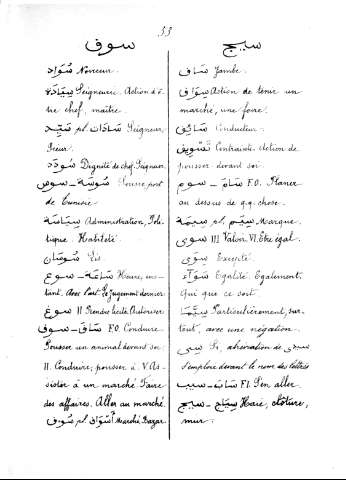 33
سوف
سُوَاد Noirceur.
سِيَادَة Seigneurie. Action d'ê-
tre chef, maître
سَيِّد pl. سَادَات Seigneur
Sieur.
سُودَد Dignité de chef, Seigneur.
سُوسَة – سوس Sousse port
de Tunisie.
سِيَاسَة Administration, Poli-
tique. Habileté.
سُوسَان Lis
سَاعَة – سوع Heure, ins-
tant. Avec l'art. le jugement dernier.
سوغ II Rendre licite. Autoriser.
سَاق – سوق F.O. Conduire
Pousser un animal devant soi
II. Conduire; pousser à V. As-
sister à un marché. Faire
des affaires. Aller au marché.
سُوق pl. أَسْوَاق Marché. Bazar.
سيج
سَاق Jambe.
سِوَاق Action de tenir un
marché, une foire.
سَائِق Conducteur.
تَسْوِيق Contrainte. Action de
pousser devant soi.
سَام – سوم F.O. Planer
au dessus de q.q. chose.
سِيمَة pl. سِيَم Marque.
سوى III Valoir VI. Etre égal.
سِوَى Excepté.
سَوَاء Egalité. Egalement.
Qui que ce soit.
سِيَّمَا Particulièrement, sur-
tout, avec une négation.
سِي Si, abréviation de سيدي
s'emploie devant le nom des lettrés
سَاب – سيب F.I. S'en aller.
سِيَاج – سيج Haie, clôture,
mur.